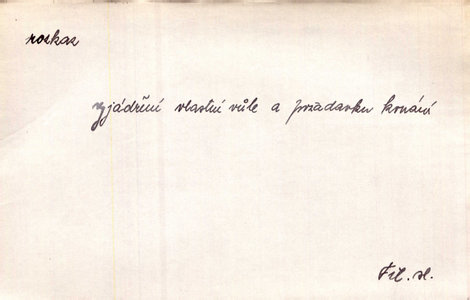 rozkaz
vyjádření vlastní vůle a požadavku konání
Fil. sl.